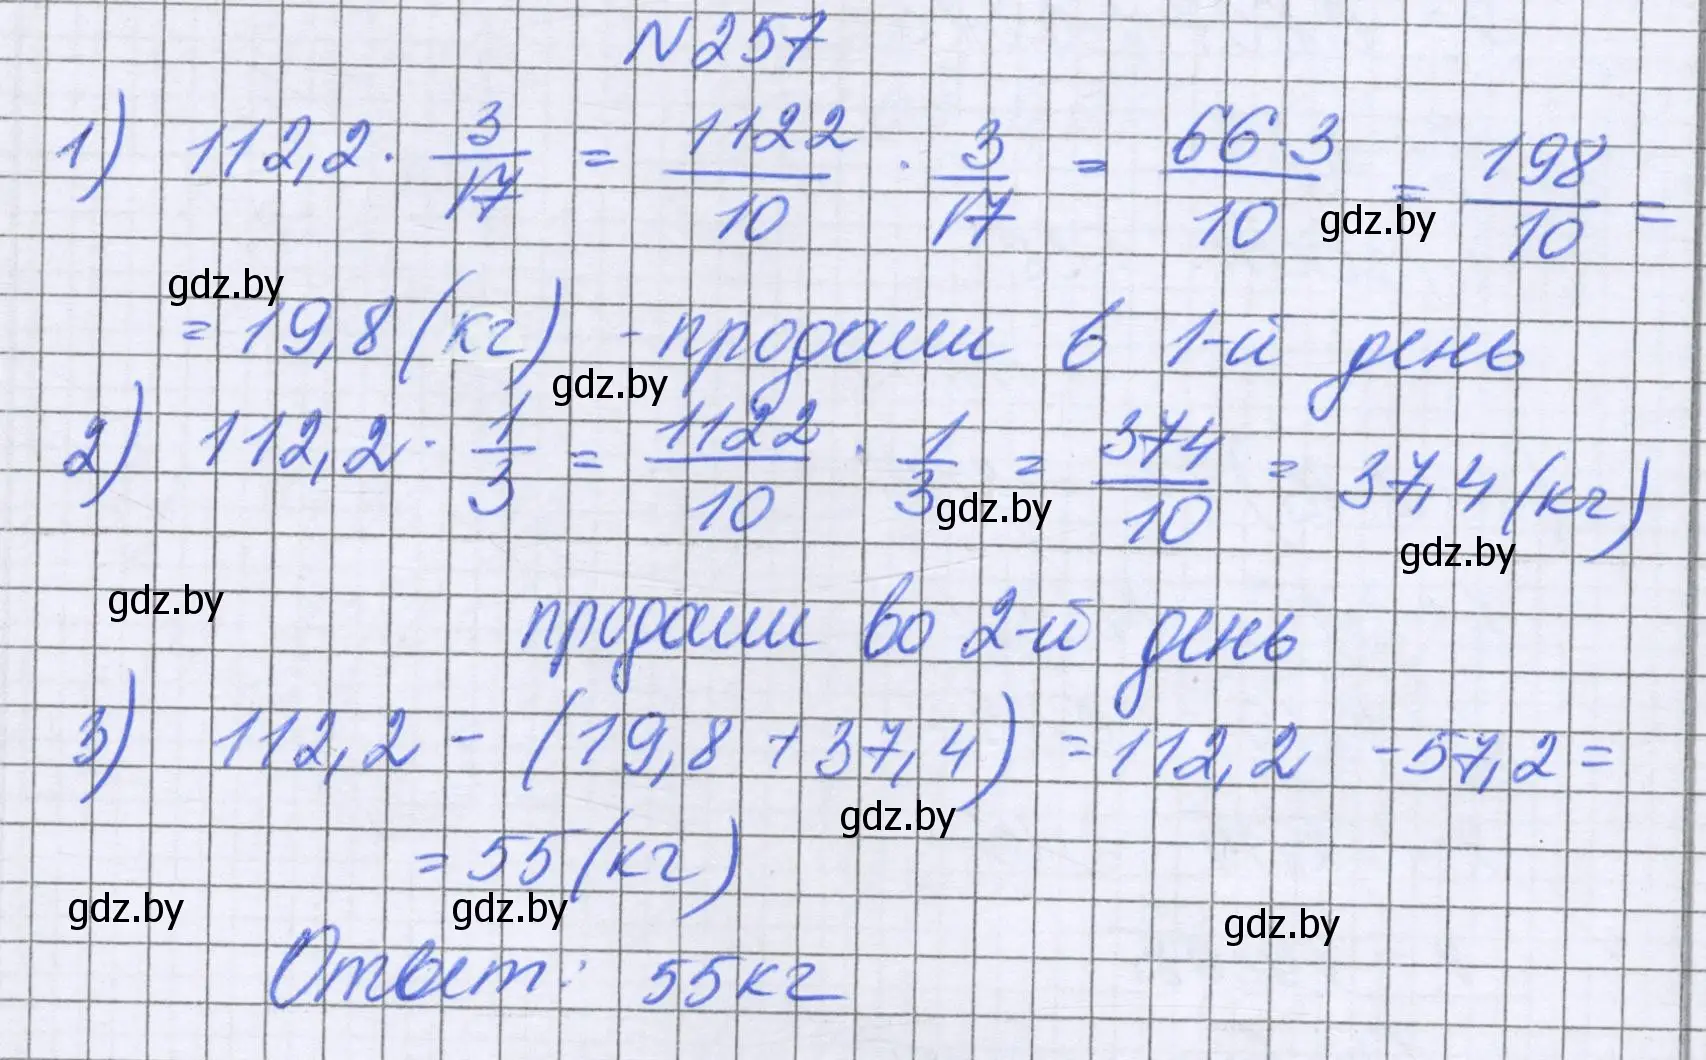 N 257
1) 112,2 · 3/17 = 1122/10 · 3/17 = 66·3/10 = 198/10 =
gdz.by
gdz.by
= 19,8 (кг) - продали в 1-й день
gdz.by
2) 112,2 · 1/3 = 1122/10 · 1/3 = 374/10 = 37,4 (кг)
gdz.by
gdz.by
gdz.by
продали во 2-й день
3) 112,2 - (19,8 + 37,4) = 112,2 - 57,2 =
gdz.by
= 55 (кг)
gdz.by gdz.by gdz.by
Ответ: 55 кг